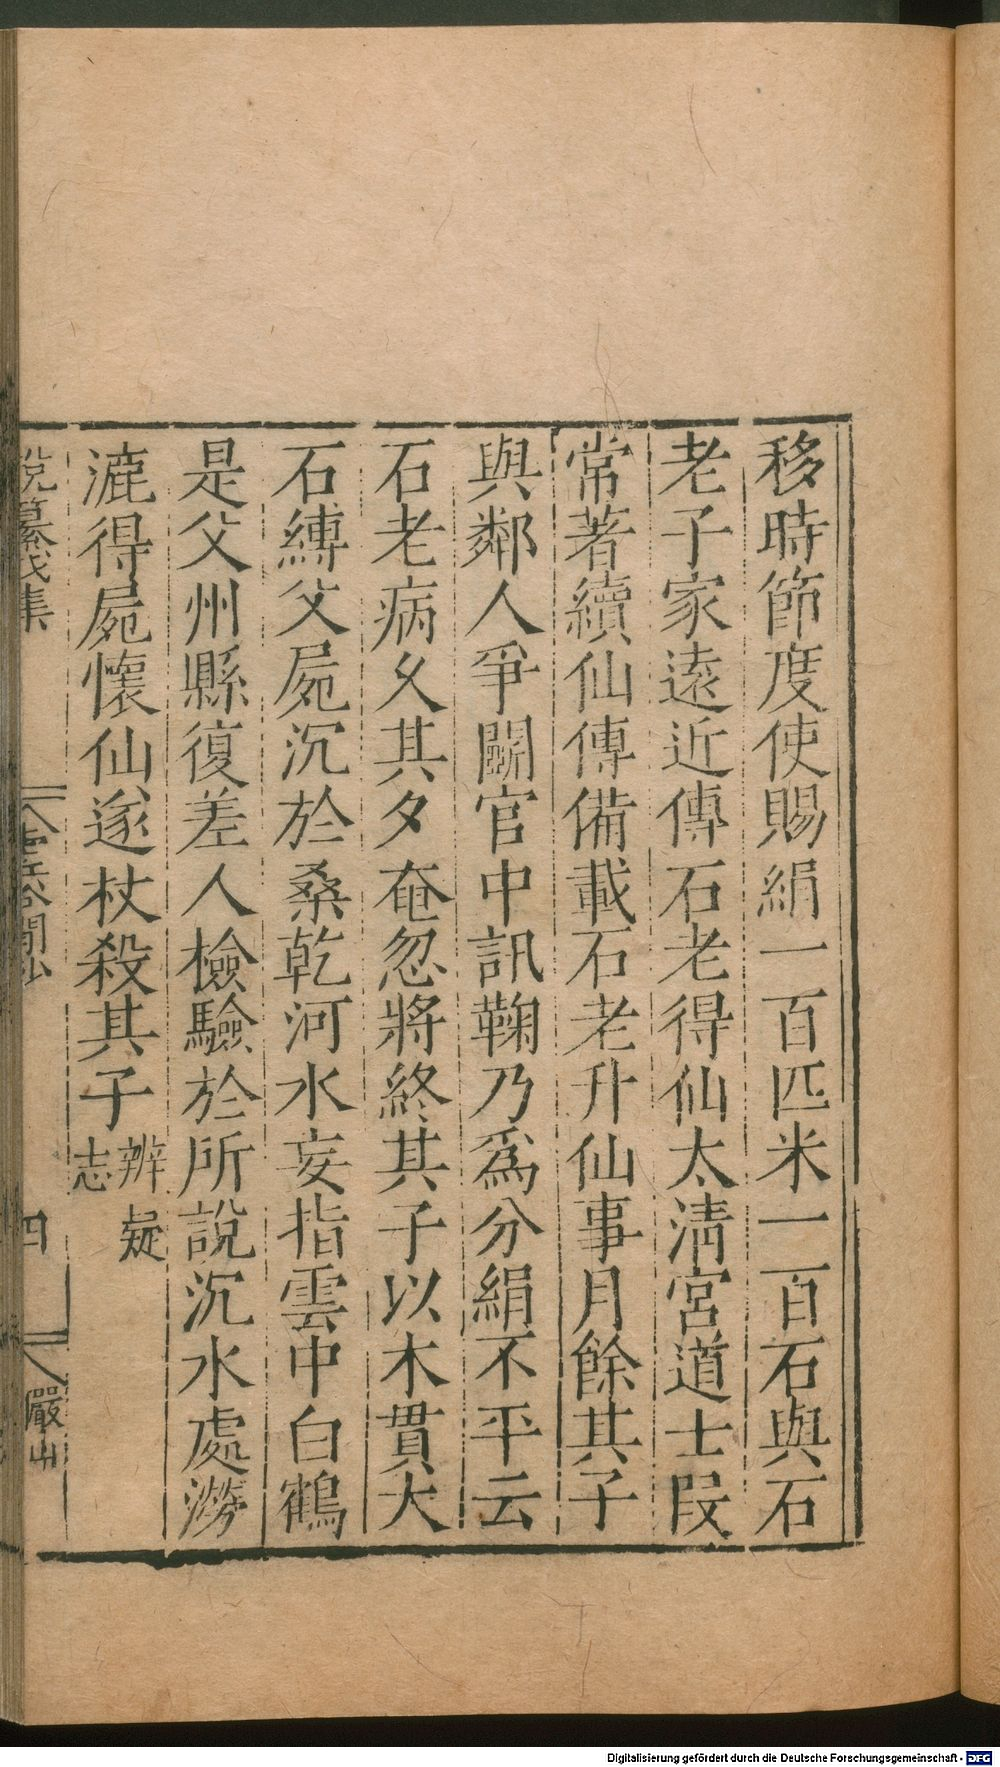 移時節度使賜絹一百匹米一百石與石
老子家遠近傳石老得仙太清宮道士段
常著續仙傳備載石老升仙事月餘其子
與鄰人爭鬭官中訊鞠乃爲分絹不平云
石老病久其夕奄忽將終其子以木貫大
石縛父屍沉於桑乾河水妄指雲中白鶴
是父州縣復差人檢驗於所說沉水處澇
漉得屍懷仙遂杖殺其子
辨疑
志
說纂戊集
四
儼山
Digitalisierung gefördert durch die Deutsche Forschungsgemeinschaft - DFG